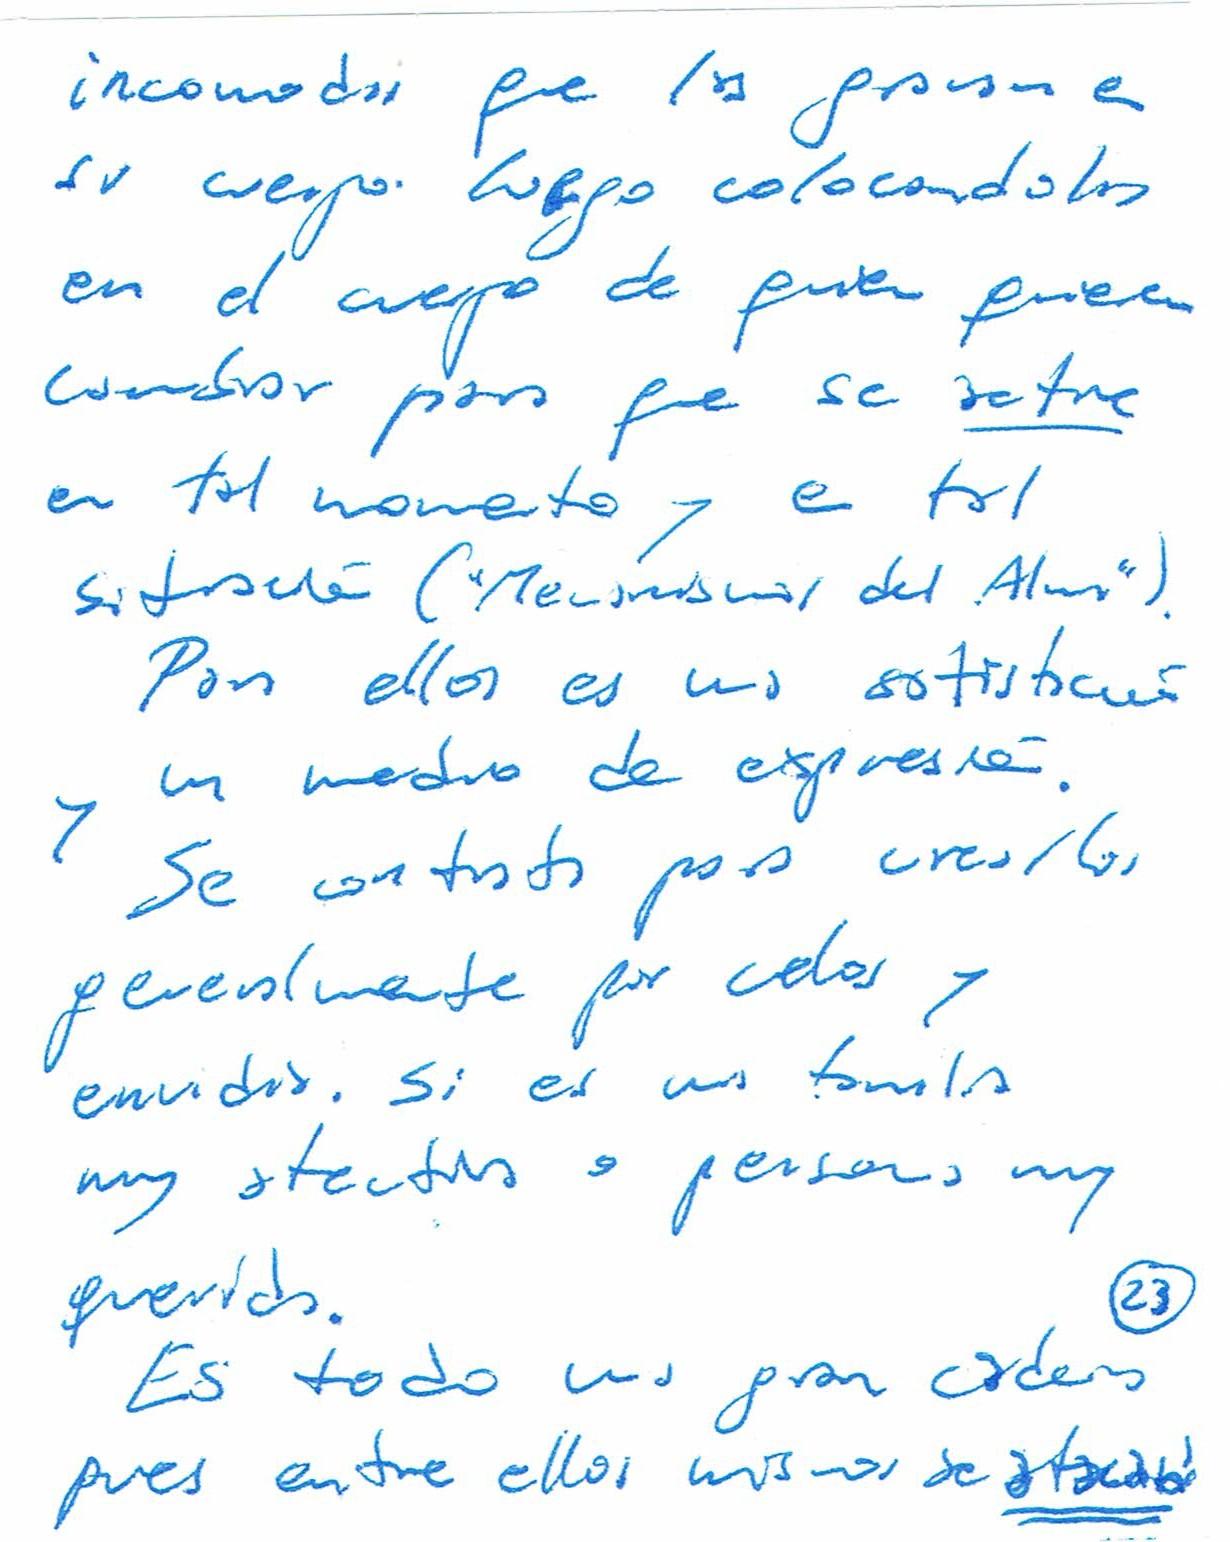 incomodos que los graban e
su cuerpo. Luego colocandolos
en el cuerpo de quien quieren
cambiar para que se actue
en tal momento y en tal
situación ("Mecanismos del Alma").
Para ellos es una satisfacción
y un medio de expresión.
Se contrata para crearlos
generalmente por celos y
envidia. Si es una familia
muy afectiva o persona muy
querida.
23
Es todo una gran cadena
pues entre ellos mismos se